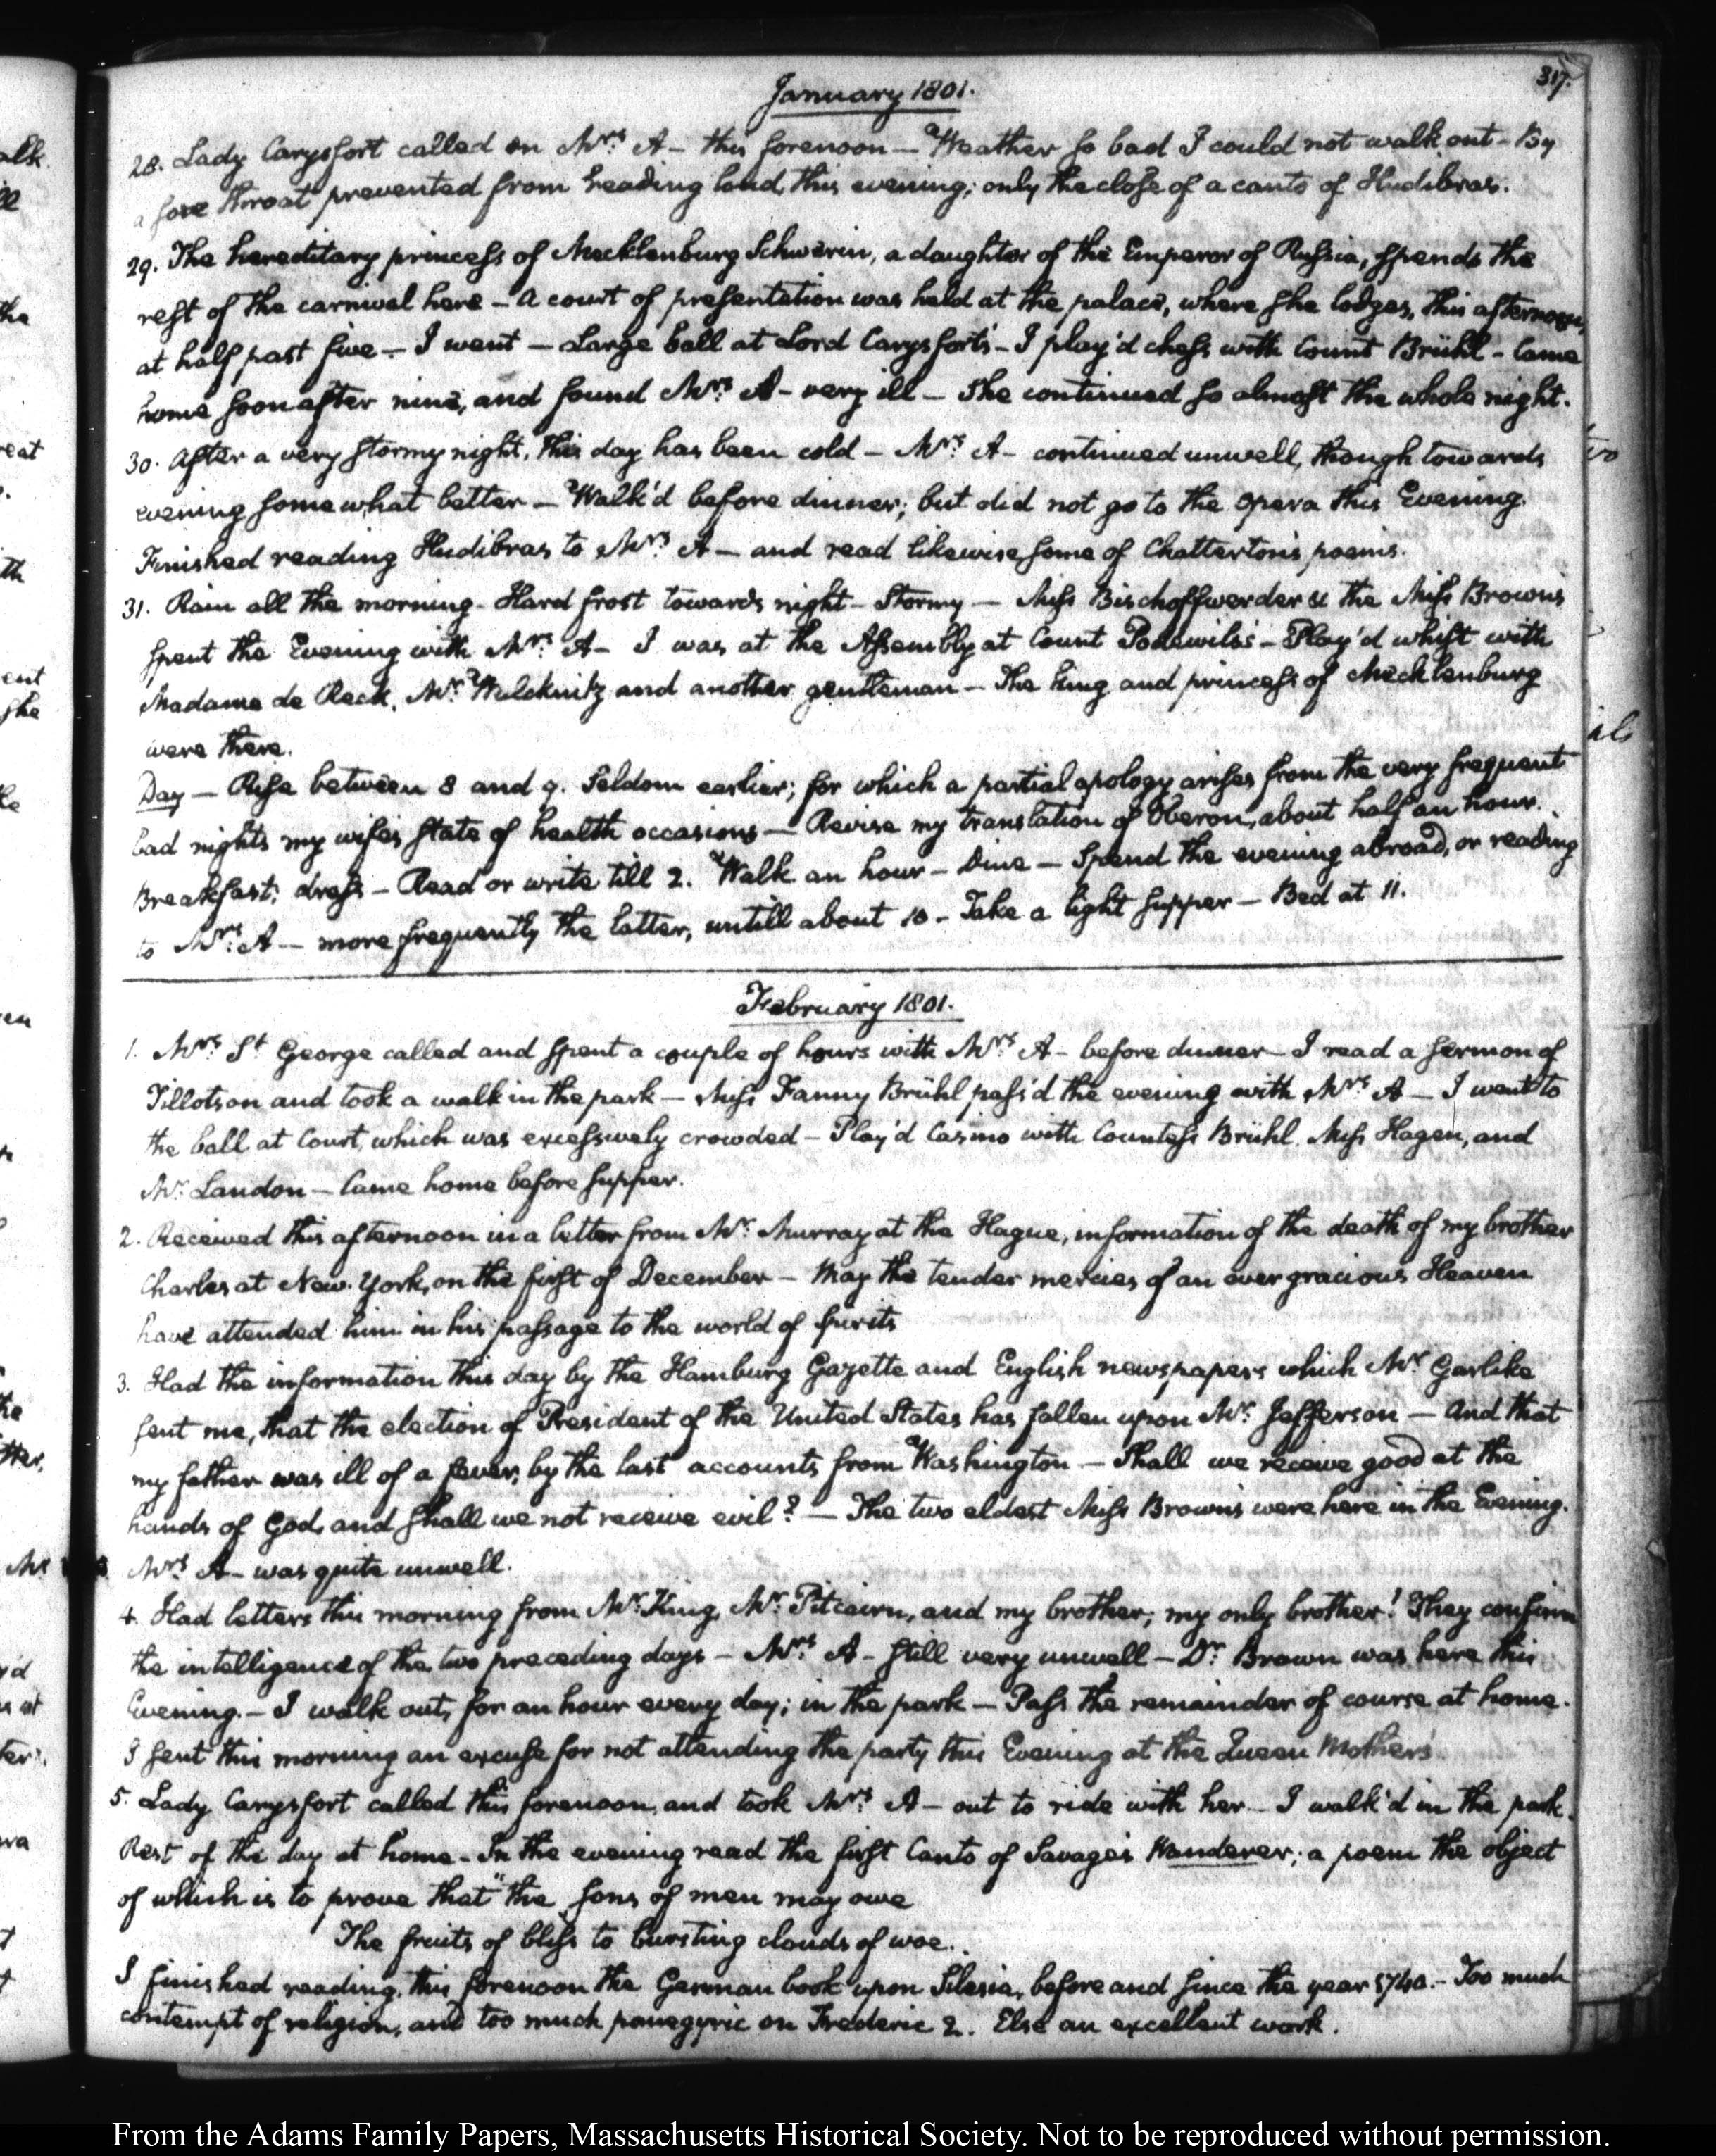 317.
January 1801.
28. Lady Carysfort called on Mrs. A— this forenoon — Weather so bad I could not walk out — By
a sore throat prevented from reading loud, this evening; only the close of a canto of Hudibras.
29. The hereditary princess of Mecklenburg Schwerin, a daughter of the Emperor of Russia, spends the
rest of the carnival here — A court of presentation was held at the palace, where she lodges, this afternoon,
at half past five — I went — Large ball at Lord Carysfort's — I play'd chess with Count Brühl — Came
home soon after nine, and found Mrs. A— very ill — She continued so almost the whole night.
30. After a very stormy night, this day has been cold — Mrs. A— continued unwell, though towards
evening somewhat better — Walk'd before dinner; but did not go to the opera this Evening.
Finished reading Hudibras to Mrs. A— and read likewise some of Chatterton's poems.
31. Rain all the morning — Hard frost towards night — Stormy — Miss Bischoffwerder & the Miss Browns
spent the Evening with Mrs. A— I was at the Assembly at Count Podewils's — Play'd whist with
Madame de Reck, Mr. and another gentleman — The King and princess of Mecklenburg
were there.
Day — Rise between 8 and 9. Seldom earlier; for which a partial apology arises from the very frequent
bad nights my wife's state of health occasions — Revise my translation of Oberon, about half an hour.
Breakfast; dress — Read or write till 2. Walk an hour — Dine — Spend the evening abroad, or reading
to Mrs. A— more frequently the latter, untill about 10 — Take a light supper — Bed at 11.
February 1801.
1. Mrs. St George called and spent a couple of hours with Mrs. A— before dinner — I read a sermon of
Tillotson and took a walk in the park — Miss Fanny Brühl pass'd the evening with Mrs. A— I went to
the ball at Court, which was excessively crowded — Play'd Casino with Countess Brühl, Miss Hagen, and
Mr. Landon — Came home before supper.
2. Received this afternoon in a letter from Mr. Murray at the Hague, information of the death of my brother
Charles at New-York, on the first of December — May the tender mercies of an ever gracious Heaven
have attended him in his passage to the world of spirits
3. Had the information this day by the Hamburg Gazette and English newspapers which Mr. Garlike
sent me, that the election of President of the United States has fallen upon Mr. Jefferson — And that
my father was ill of a fever, by the last accounts from Washington — Shall we receive good at the
hands of God, and shall we not receive evil? — The two eldest Miss Browns were here in the Evening.
Mrs. A— was quite unwell.
4. Had letters this morning from Mr. King, Mr. Pitcairn, and my brother; my only brother! They confirm
the intelligence of the two preceding days — Mrs. A— still very unwell — Dr. Brown was here this
Evening. — I walk out, for an hour every day; in the park — Pass the remainder of course at home.
I sent this morning an excuse for not attending the party this Evening at the Queen Mother's.
5. Lady Carysfort called this forenoon, and took Mrs. A— out to ride with her — I walk'd in the park.
Rest of the day at home — In the evening read the first Canto of Savage's Wanderer; a poem the object
of which is to prove that "the sons of men may owe
The fruits of bliss to bursting clouds of woe.
I finished reading, this forenoon the German book upon Silesia, before and since the year 1740. — Too much
contempt of religion, and too much panegyric on Frederic 2. Else an excellent work.
From the Adams Family Papers, Massachusetts Historical Society. Not to be reproduced without permission.